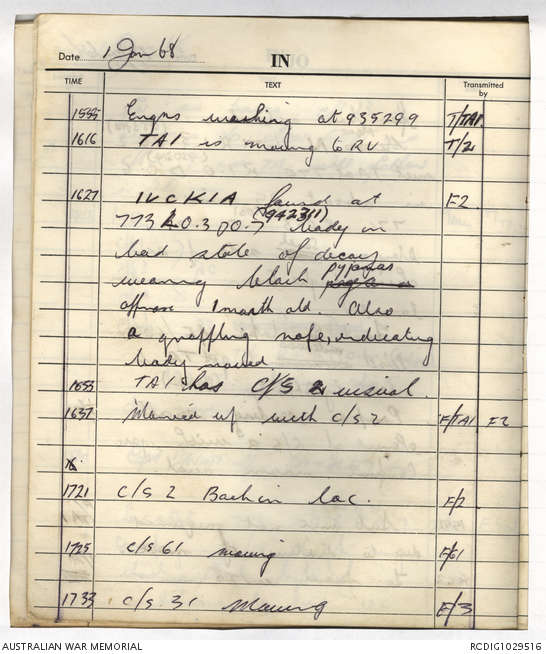 Date 1 Jan 68 IN
TIME TEXT Transmitted by
1555 Engrs washing at 935299 T/TA1
1616 TA1 is moving to RV T/2
1627 1 VC KIA found at F2
773 R0.3 D0.7 (942311) body in
bad state of decay
wearing black pyjamas
approx 1 month old. Also
a grappling rope, indicating
body moved
1633 TA1 has C/S 2 visual.
1637 Married up with C/S 2 F/TA1 F2
1721 C/S 2 Back in loc. F/2
1725 C/S 61 moving F/61
1733 C/S 31 Moving F/3
AUSTRALIAN WAR MEMORIAL RCDIG1029516